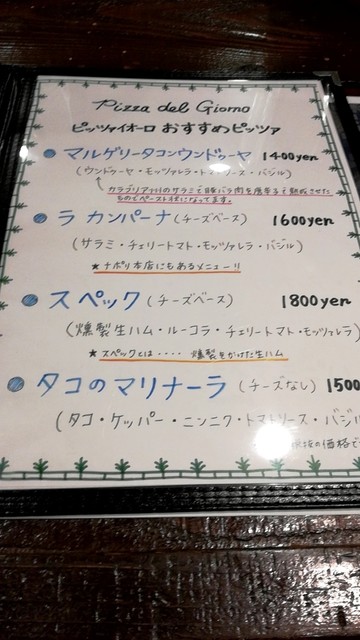 Pizza del Giorno
ピッツァイオーロ おすすめピッツァ
マルゲリータコンウンドゥーヤ 1400yen
(ウンドゥーヤ・モッツァレラ・トマトソース・バジル)
カラブリア州のサラミで豚バラ肉を唐辛子で熟成させた
ものでペースト状になってます。
ラ カンパーナ(チーズベース) 1600yen
(サラミ・チェリートマト・モッツァレラ・バジル)
★ナポリ本店にもあるメニュー!!
スペック(チーズベース) 1800yen
(燻製生ハム・ルーコラ・チェリートマト・モッツァレラ)
★スペックとは・・・・ 燻製をかけた生ハム
タコのマリナーラ (チーズなし) 1500
(タコ・ケッパー・ニンニク・トマトソース・バジル
の価格で